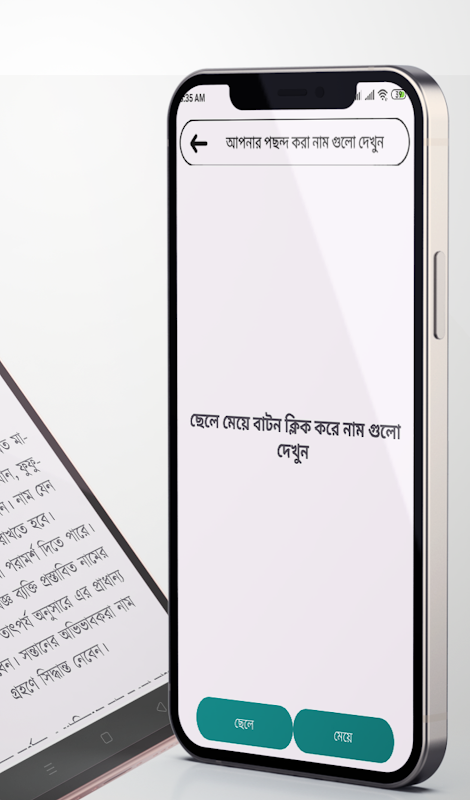 :35 AM
39
আপনার পছন্দ করা নাম গুলো দেখুন
ছেলে মেয়ে বাটন ক্লিক করে নাম গুলো
দেখুন
ছেলে
মেয়ে
ত মা-
ফুফু-
ন। নাম যেন
রাখতে হবে।
পরামর্শ দিতে পারে।
ব্যক্তি প্রস্তাবিত নামের
তাৎপর্য অনুসারে এর প্রাধান্য
বেন। সন্তানের অভিভাবকরা নাম
গ্রহণে সিদ্ধান্ত নেবেন।